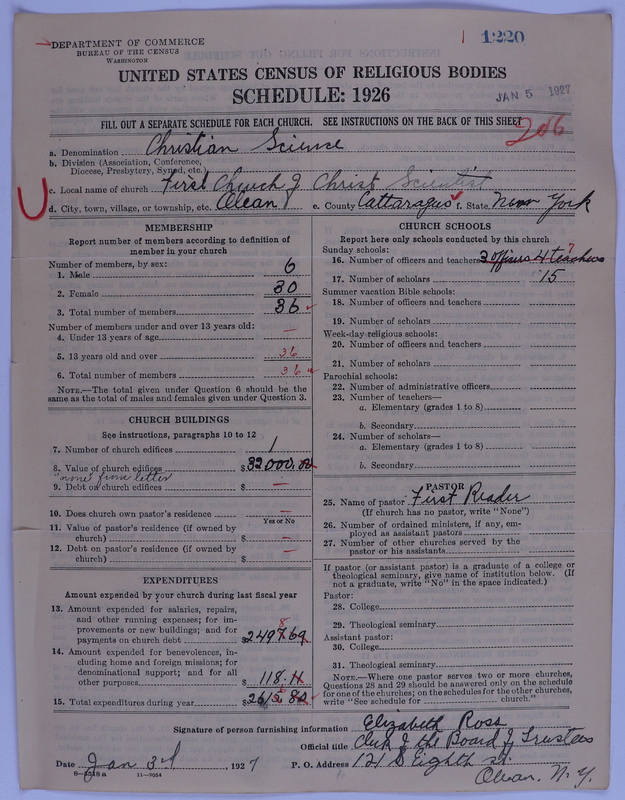 DEPARTMENT OF COMMERCE
BUREAU OF THE CENSUS
WASHINGTON
1 1220
UNITED STATES CENSUS OF RELIGIOUS BODIES
SCHEDULE: 1926
JAN 5 1927
FILL OUT A SEPARATE SCHEDULE FOR EACH CHURCH. SEE INSTRUCTIONS ON THE BACK OF THIS SHEET
206
a. Denomination Christian Science
b. Division (Association, Conference,
Diocese, Presbytery, Synod, etc.)
c. Local name of church First Church of Christ Scientist
d. City, town, village, or township, etc. Olean e. County Cattaragus f. State New York
MEMBERSHIP
Report number of members according to definition of
member in your church
Number of members, by sex:
1. Male 6
2. Female 30
3. Total number of members 36
Number of members under and over 13 years old:
4. Under 13 years of age —
5. 13 years old and over 36
6. Total number of members 36
NOTE.—The total given under Question 6 should be
same as the total of males and females given under Question 3.
CHURCH BUILDINGS
See instructions, paragraphs 10 to 12
7. Number of church edifices 1
8. Value of church edifices $32000.00
"none" from letter
9. Debt on church edifices $ —
10. Does church own pastor's residence —
Yes or No
11. Value of pastor's residence (if owned by
church) $ —
12. Debt on pastor's residence (if owned by
church) $ —
EXPENDITURES
Amount expended by your church during last fiscal year
13. Amount expended for salaries, repairs,
and other running expenses; for im-
provements or new buildings; and for
payments on church debt $2497.69
8
14. Amount expended for benevolences, in-
cluding home and foreign missions; for
denominational support; and for all
other purposes $118.11
15. Total expenditures during year $
CHURCH SCHOOLS
Report here only schools conducted by this church
Sunday schools:
16. Number of officers and teachers 3 officers 4 teachers
7
17. Number of scholars 15
Summer vacation Bible schools:
18. Number of officers and teachers
19. Number of scholars
Week-day religious schools:
20. Number of officers and teachers
21. Number of scholars
Parochial schools:
22. Number of administrative officers
23. Number of teachers—
a. Elementary (grades 1 to 8)
b. Secondary
24. Number of scholars—
a. Elementary (grades 1 to 8)
b. Secondary
PASTOR
25. Name of pastor First Reader
(If church has no pastor, write "None")
26. Number of ordained ministers, if any, em-
ployed as assistant pastors
27. Number of other churches served by the
pastor or his assistants
If pastor (or assistant pastor) is a graduate of a college or
theological seminary, give name of institution below. (If
not a graduate, write "No" in the space indicated.)
Pastor:
28. College
29. Theological seminary
Assistant pastor:
30. College
31. Theological seminary
NOTE.—Where one pastor serves two or more churches,
Questions 28 and 29 should be answered only on the schedule
for one of the churches; on the schedules for the other churches,
write "See schedule for church."
Signature of person furnishing information Elizabeth Ross
Official title Clerk of the Board of Trustees
Date Jan 3d, 1927 P. O. Address 121 S Eighth St.
8—5518a 11—9054
Olean, N.Y.